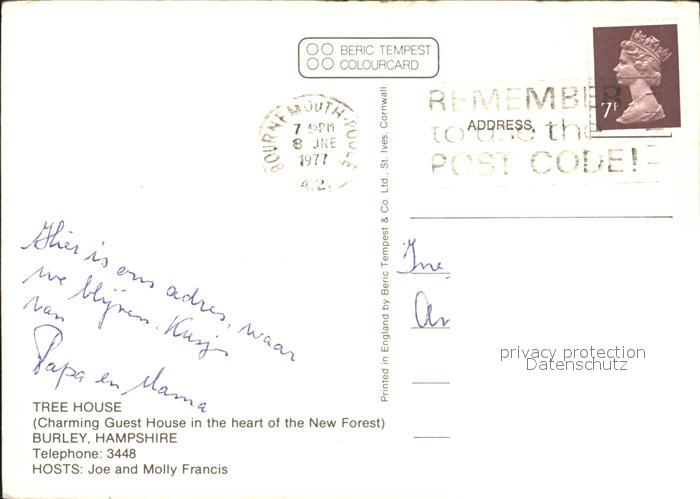 BERIC TEMPEST
COLOURCARD
BOURNEMOUTH-POOLE
7 PM
8 JNE
1977
A.2.
REMEMBER
to use the
POST CODE!
7P
ADDRESS
Printed in England by Beric Tempest & Co. Ltd., St. Ives, Cornwall.
Hier is ons adres, waar
we blijven. Kusjes
van
Papa en Mama
TREE HOUSE
(Charming Guest House in the heart of the New Forest)
BURLEY, HAMPSHIRE
Telephone: 3448
HOSTS: Joe and Molly Francis
privacy protection
Datenschutz